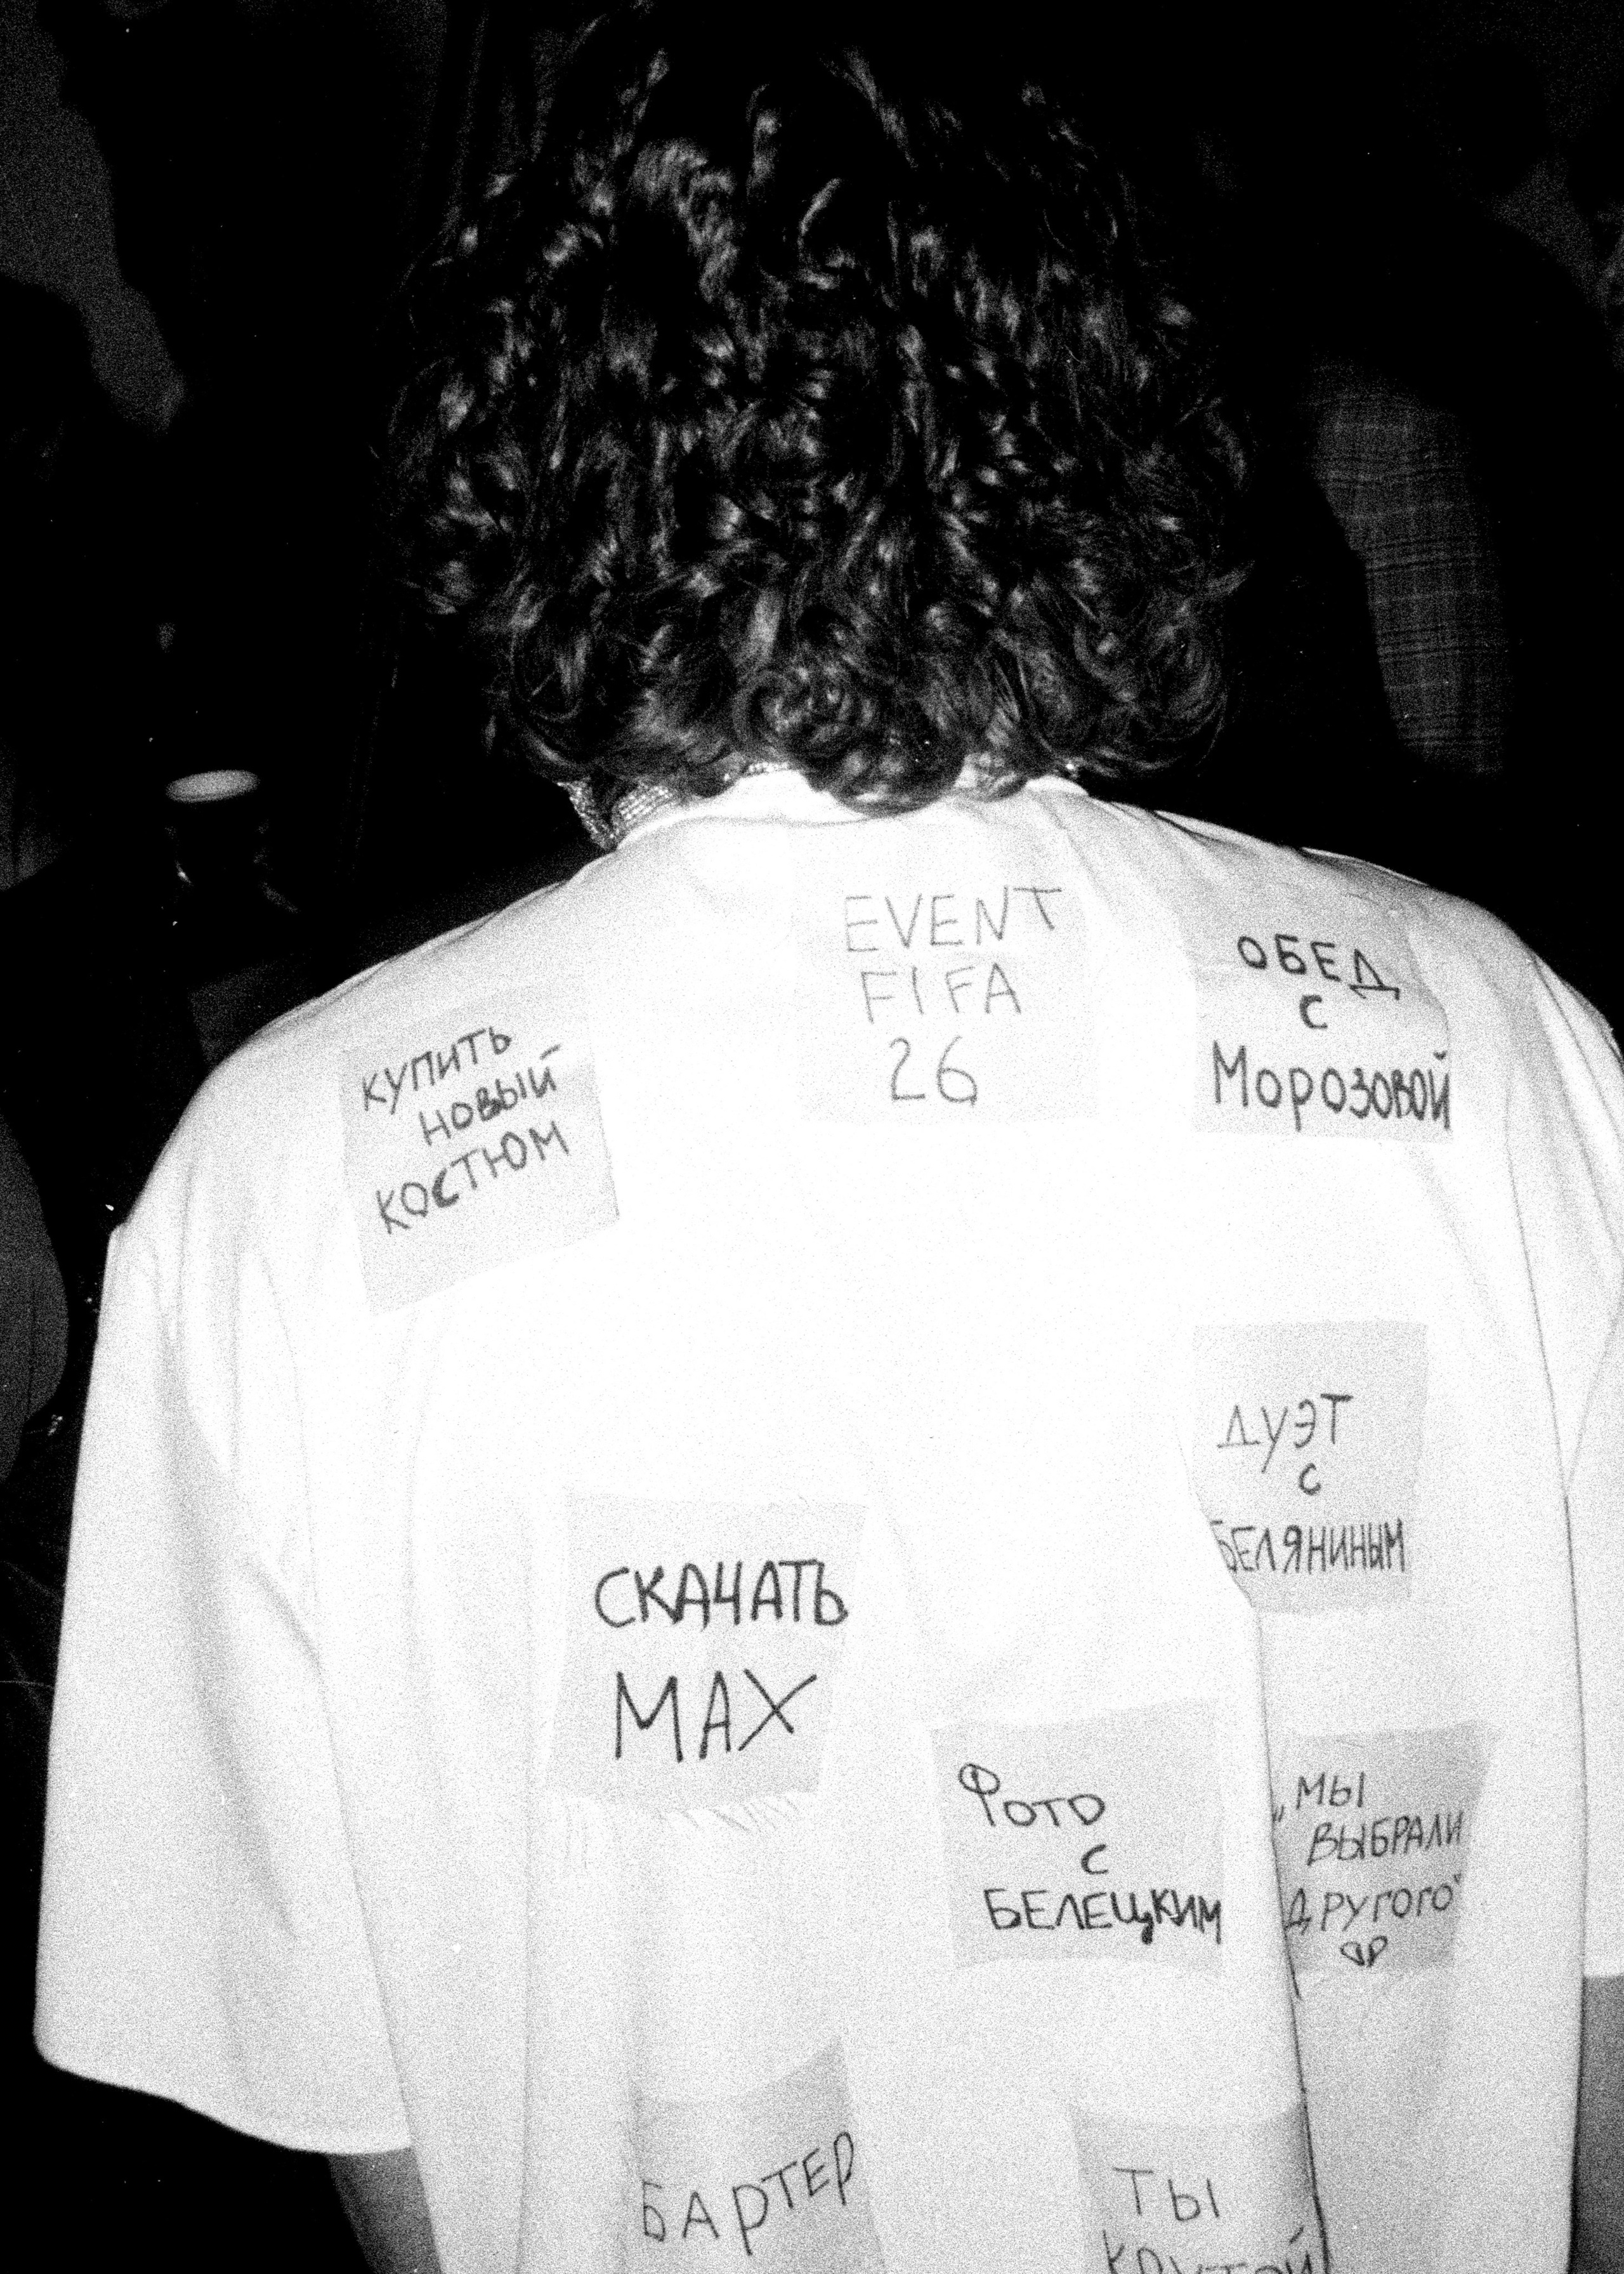 EVENT
FIFA
26
ОБЕД
С
МОРОЗОВОЙ
КУПИТЬ
НОВЫЙ
КОСТЮМ
ДУЭТ
С
БЕЛЯНИНЫМ
СКАЧАТЬ
MAX
ФОТО
С
БЕЛЕЦКИМ
„МЫ
ВЫБРАЛИ
ДРУГОГО"
БАРТЕР
ТЫ
КРУТОЙ